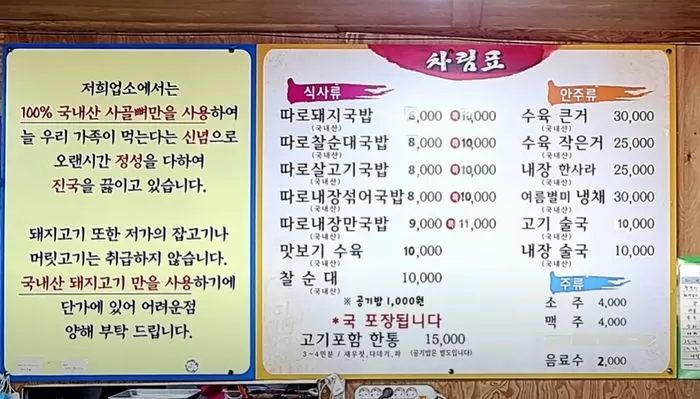 저희업소에서는
100% 국내산 사골뼈만을 사용하여
늘 우리 가족이 먹는다는 신념으로
오랜시간 정성을 다하여
진국을 끓이고 있습니다.
돼지고기 또한 저가의 잡고기나
머릿고기는 취급하지 않습니다.
국내산 돼지고기 만을 사용하기에
단가에 있어 어려운점
양해 부탁 드립니다.
차림표
식사류
따로돼지국밥 8,000 특 10,000
(국내산)
따로찰순대국밥 8,000 특 10,000
(국내산)
따로살고기국밥 8,000 특 10,000
(국내산)
따로내장섞어국밥 8,000 특 10,000
(국내산)
따로내장만국밥 9,000 특 11,000
(국내산)
맛보기 수육 10,000
(국내산)
찰 순 대 10,000
(국내산)
※ 공기밥 1,000원
*국 포장됩니다
고기포함 한통 15,000
3~4인분 / 새우젓, 다데기, 파 (공기밥은 별도입니다)
안주류
수육 큰거 30,000
(국내산)
수육 작은거 25,000
(국내산)
내장 한사라 25,000
(국내산)
여름별미 냉채 30,000
(국내산)
고기 술국 10,000
(국내산)
내장 술국 10,000
(국내산)
주류
소 주 4,000
맥 주 4,000
음료수 2,000